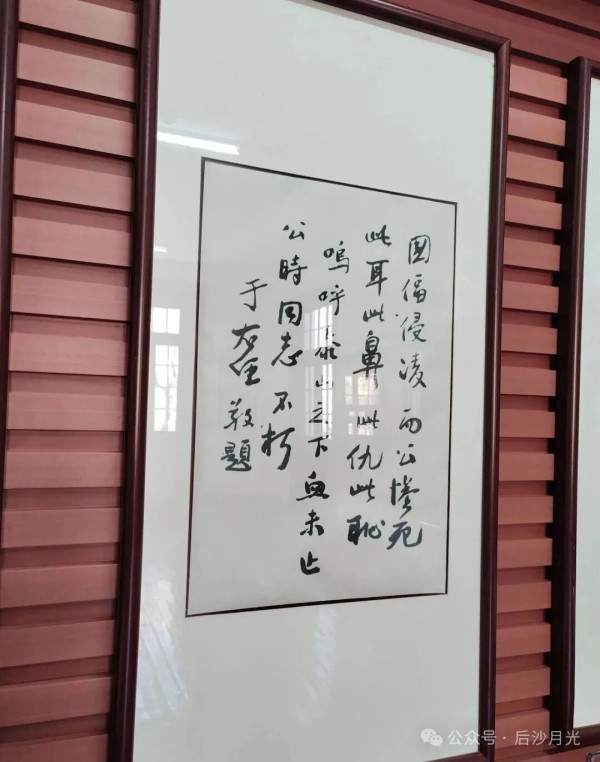 國侮侵凌而公慘死
此耳此鼻此仇此恥
嗚呼泰山之下血未止
公時同志不朽
于右任敬題
公众号·后沙月光